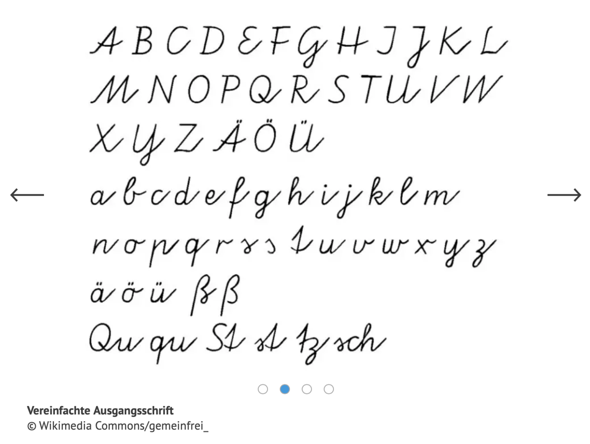 A B C D E F G H I J K L
M N O P Q R S T U V W
X Y Z Ä Ö Ü
a b c d e f g h i j k l m
n o p q r s s t u v w x y z
ä ö ü ß ß
Qu qu St st tz sch
Vereinfachte Ausgangsschrift
© Wikimedia Commons/gemeinfrei_